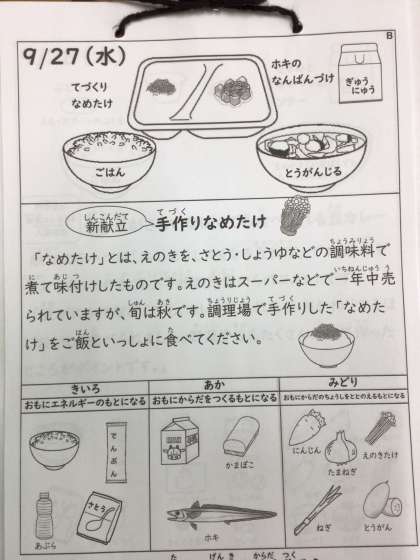 B
9/27(水)
てづくり
なめたけ
ホキの
なんばんづけ
ぎゅう
にゅう
ごはん
とうがんじる
しんこんだて
新献立
てづく
手作りなめたけ
「なめたけ」とは、えのきを、さとう・しょうゆなどの調味料で
ちょうみりょう
煮て味付けしたものです。えのきはスーパーなどで一年中売
に あじつ いちねんじゅう う
られていますが、旬は秋です。調理場で手作りした「なめた
しゅん あき ちょうりじょう てづく
け」をご飯といっしょに食べてください。
はん た
きいろ
おもにエネルギーのもとになる
あか
おもにからだをつくるもとになる
みどり
おもにからだのちょうしをととのえるもとになる
でんぷん
あぶら
さとう
かまぼこ
ホキ
にんじん
たまねぎ
えのきたけ
ねぎ
とうがん